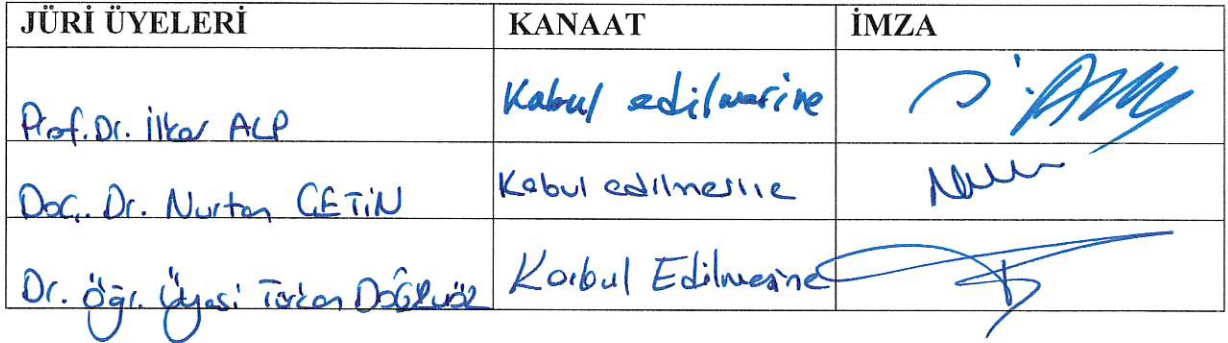 JÜRİ ÜYELERİ KANAAT İMZA
Prof. Dr. İlker ALP Kabul edilmesine
Doç. Dr. Nurten ÇETİN Kabul edilmesine
Dr. Öğr. Üyesi Kabul Edilmesine